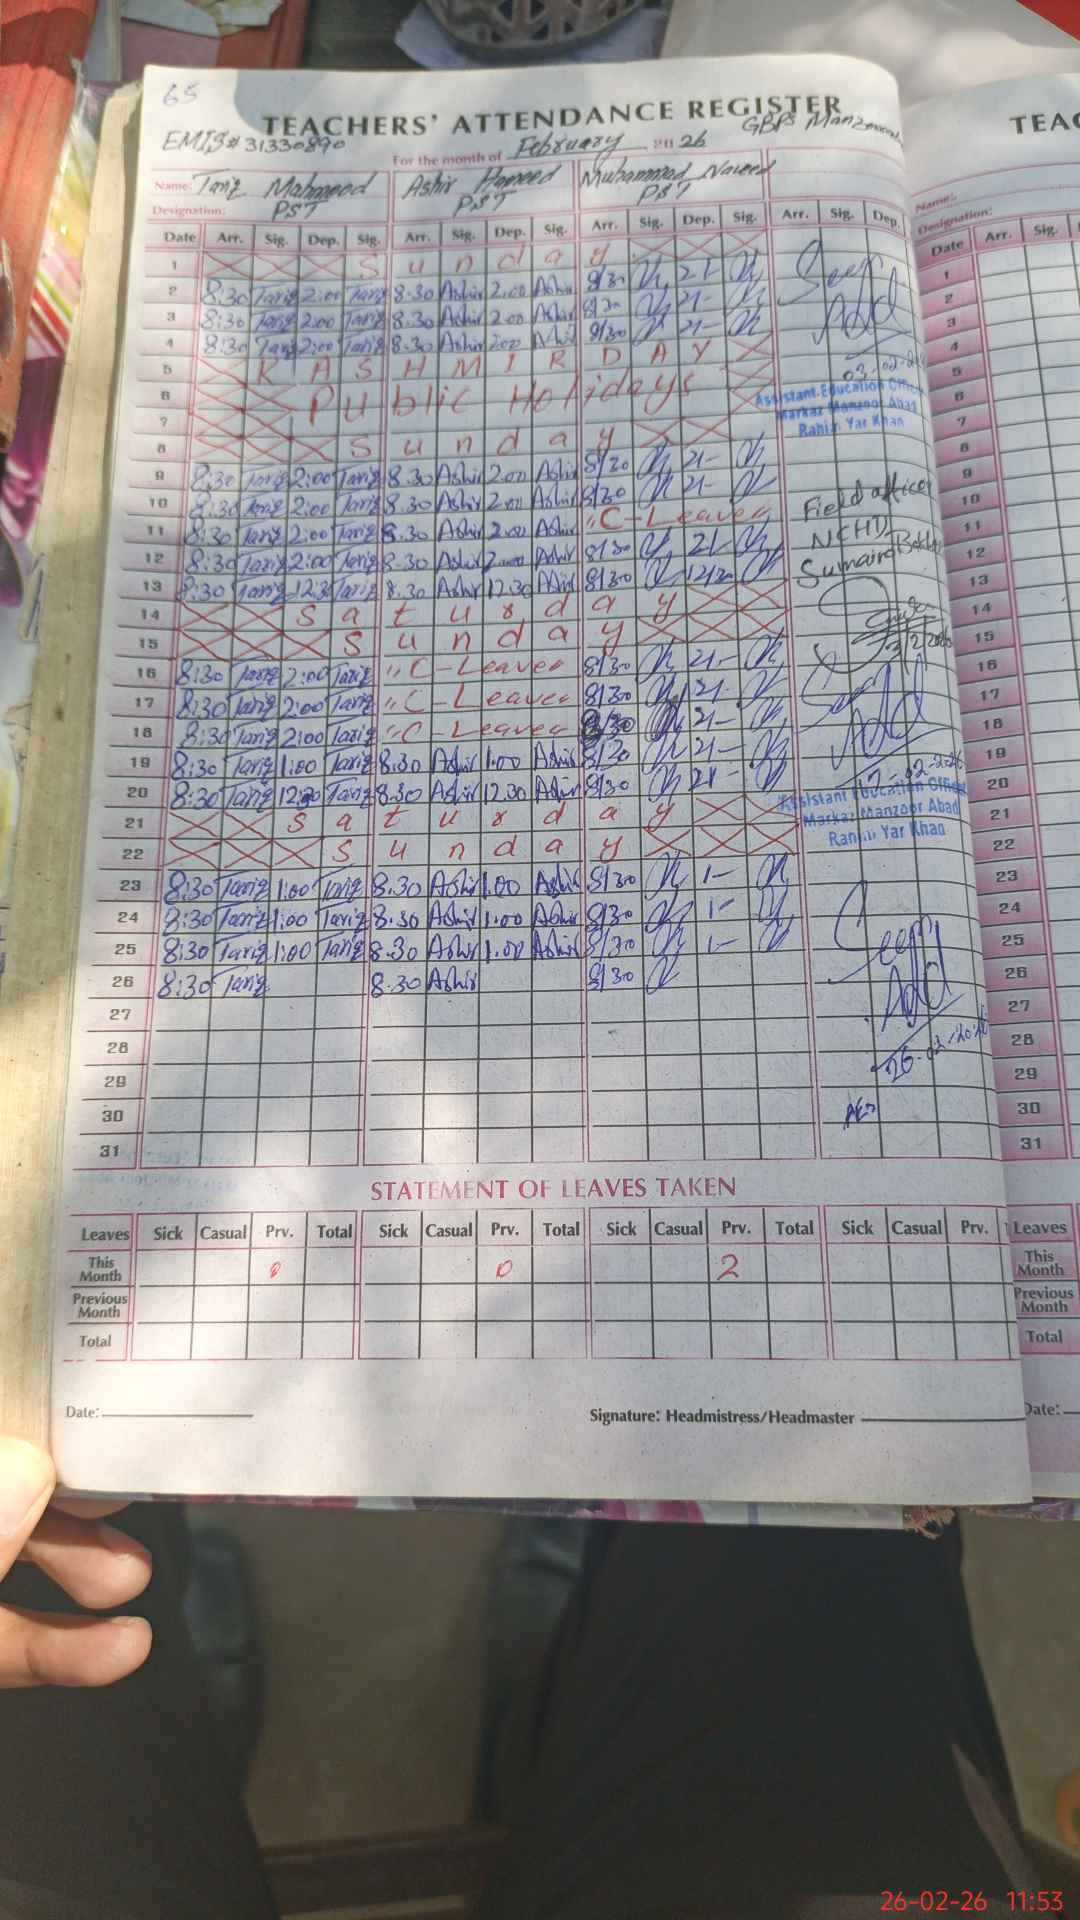 65
TEACHERS' ATTENDANCE REGISTER
EMIS# 31330890 For the month of February 2026 GBPS
Name: Tariq Mahmood Ashir Hameed Muhammad Naveed
Designation: PST PST PST
Date Arr. Sig. Dep. Sig. Arr. Sig. Dep. Sig. Arr. Sig. Dep. Sig. Arr. Sig. Dep.
1 Sunday
2 8:30 Tariq 2:00 Tariq 8.30 Ashir 2.00 Ashir 8/30 2/-
3 8:30 Tariq 2:00 Tariq 8.30 Ashir 2.00 Ashir 8/30 2/-
4 8:30 Tariq 2:00 Tariq 8.30 Ashir 2.00 Ashir 8/30 2/-
5 KASHMIR DAY
6 Public Holidays
7
8 Sunday
9 8:30 Tariq 2:00 Tariq 8.30 Ashir 2.00 Ashir 8/30 2/-
10 8:30 Tariq 2:00 Tariq 8.30 Ashir 2.00 Ashir 8/30 2/-
11 8:30 Tariq 2:00 Tariq 8.30 Ashir 2.00 Ashir "C-Leave"
12 8:30 Tariq 2:00 Tariq 8.30 Ashir 2.00 Ashir 8/30 2/-
13 8:30 Tariq 12:30 Tariq 8.30 Ashir 12.30 Ashir 8/30 12/30
14 Saturday
15 Sunday
16 8:30 Tariq 2:00 Tariq "C-Leave" 8/30 2/-
17 8:30 Tariq 2:00 Tariq "C-Leave" 8/30 2/-
18 8:30 Tariq 2:00 Tariq "C-Leave" 8/30 2/-
19 8:30 Tariq 1:00 Tariq 8.30 Ashir 1.00 Ashir 8/30 2/-
20 8:30 Tariq 12:30 Tariq 8.30 Ashir 12.30 Ashir 8/30
21 Saturday
22 Sunday
23 8:30 Tariq 1:00 Tariq 8.30 Ashir 1.00 Ashir 8/30 1-
24 8:30 Tariq 1:00 Tariq 8.30 Ashir 1.00 Ashir 8/30 1-
25 8:30 Tariq 1:00 Tariq 8.30 Ashir 1.00 Ashir 8/30 1-
26 8:30 Tariq 8.30 Ashir 8/30
27
28
29
30
31
Assistant Education Officer
Markaz Manzoor Abad
Rahim Yar Khan
Field officer
NCHD
Sumaira
Assistant Education Officer
Markaz Manzoor Abad
Rahim Yar Khan
26-02-2026
STATEMENT OF LEAVES TAKEN
Leaves Sick Casual Prv. Total Sick Casual Prv. Total Sick Casual Prv. Total Sick Casual Prv.
This Month 0 0 2
Previous Month
Total
Date: Signature: Headmistress/Headmaster
TEAC
Name:
Designation:
Date Arr. Sig.
1
2
3
4
5
6
7
8
9
10
11
12
13
14
15
16
17
18
19
20
21
22
23
24
25
26
27
28
29
30
31
Leaves
This Month
Previous Month
Total
Date:
26-02-26 11:53